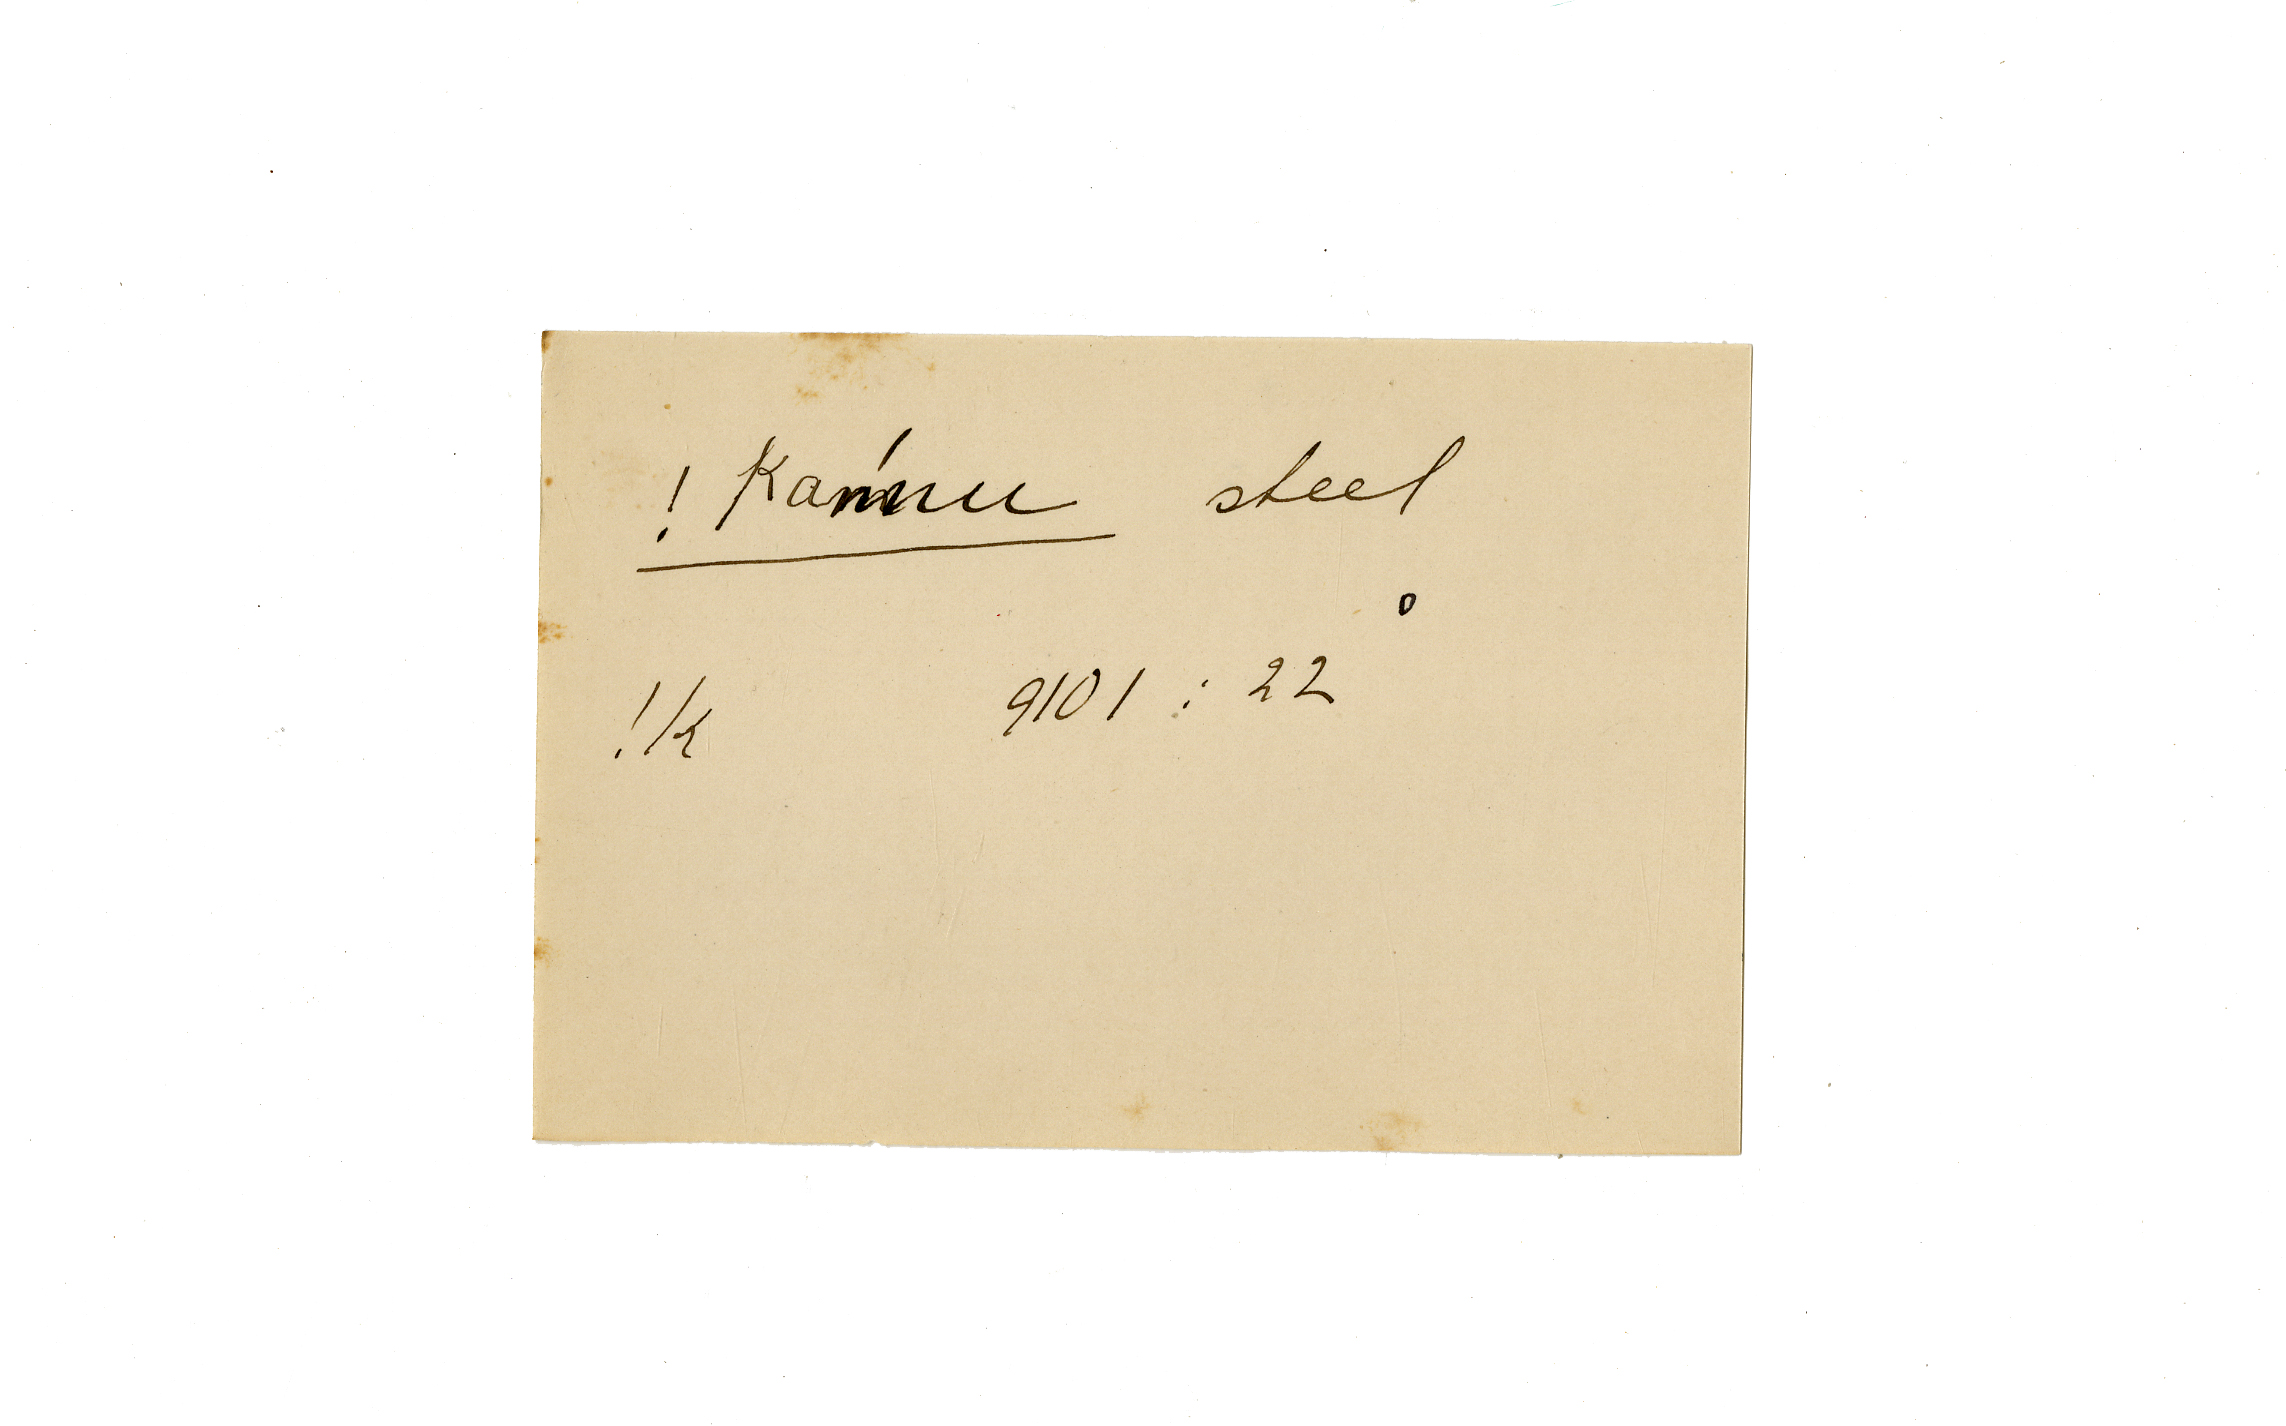 ! Kańnu steel
o
!k 9101 : 22